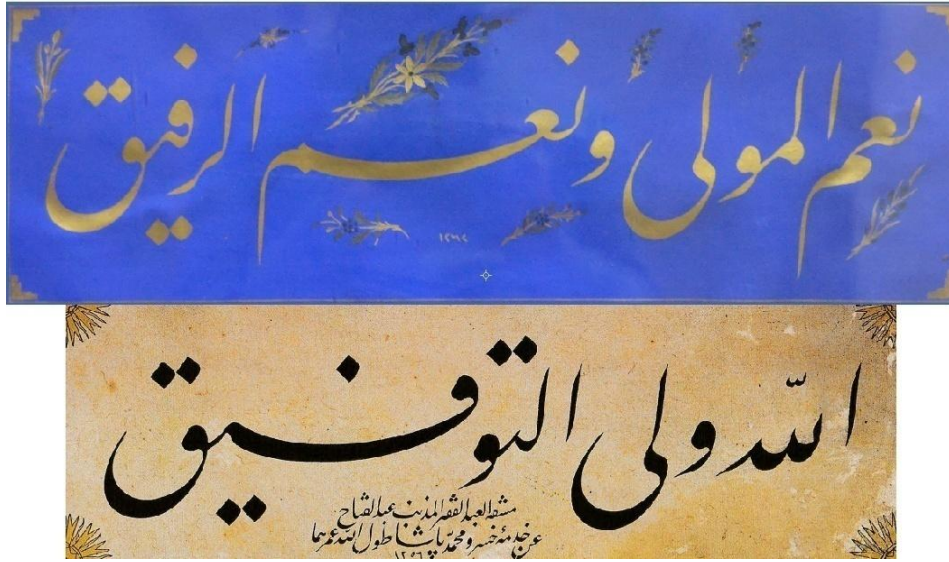 نعم المولى ونعم الرفيق
الله ولى التوفيق
مشقه العبد الفقير المذنب عبد الفتاح
عن خدمهٔ خسرو محمد پاشا طول الله عمرهما
١٢٥٦